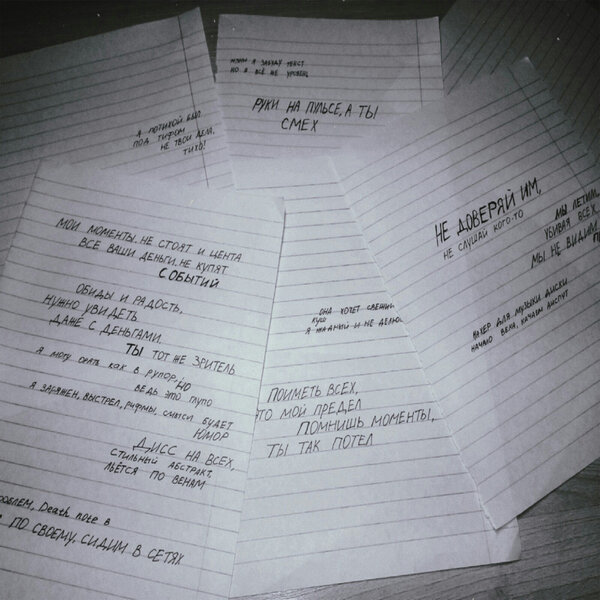 А ПОТИХОЙ БЫЛ
ПОД ГИФОМ
НЕ ТВОИ ДЕЛ,
ТИХО!
Я ЗАБУДУ ТЕКСТ
НО Я ВСЁ ЖЕ УРОВЕНЬ
РУКИ НА ПУЛЬСЕ, А ТЫ
СМЕХ
МОИ МОМЕНТЫ НЕ СТОЯТ И ЦЕНТА
ВСЕ ВАШИ ДЕНЬГИ НЕ КУПЯТ
СОБЫТИЙ
ОБИДЫ И РАДОСТЬ,
НУЖНО УВИДЕТЬ
ДАЖЕ С ДЕНЬГАМИ
ТЫ ТОТ ЖЕ ЗРИТЕЛЬ
Я МОГУ ОРАТЬ КАК В РУПОР, НО
ВЕДЬ ЭТО ТУПО
Я ЗАРЯЖЕН, ВЫСТРЕЛ, РИФМЫ, СМЫСЛ БУДЕТ
ЮМОР
ДИСС НА ВСЕХ,
СТИЛЬНЫЙ АБСТРАКТ,
ЛЬЁТСЯ ПО ВЕНАМ
РОБЛЕМ, Death note в
ПО СВОЕМУ, СИДИМ В СЕТЯХ
ОНА ХОЧЕТ СВЕЖИЙ
КУШ
Я ЖАДНЫЙ И НЕ ДЕЛЮ
ПОИМЕТЬ ВСЕХ,
ЭТО МОЙ ПРЕДЕЛ
ПОМНИШЬ МОМЕНТЫ,
ТЫ ТАК ПОТЕЛ
НЕ ДОВЕРЯЙ ИМ,
НЕ СЛУШАЙ КОГО-ТО
МЫ ЛЕТИМ,
УБИВАЯ ВСЕХ,
МЫ НЕ ВИДИМ
НАХЕР ДЛЯ МУЗЫКИ ДИСКИ
НАЧАЛО ВЕКА, КАЧАЕМ ДИСПУТ